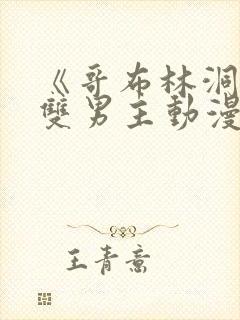 《哥布林洞
雙男主動漫
王青意